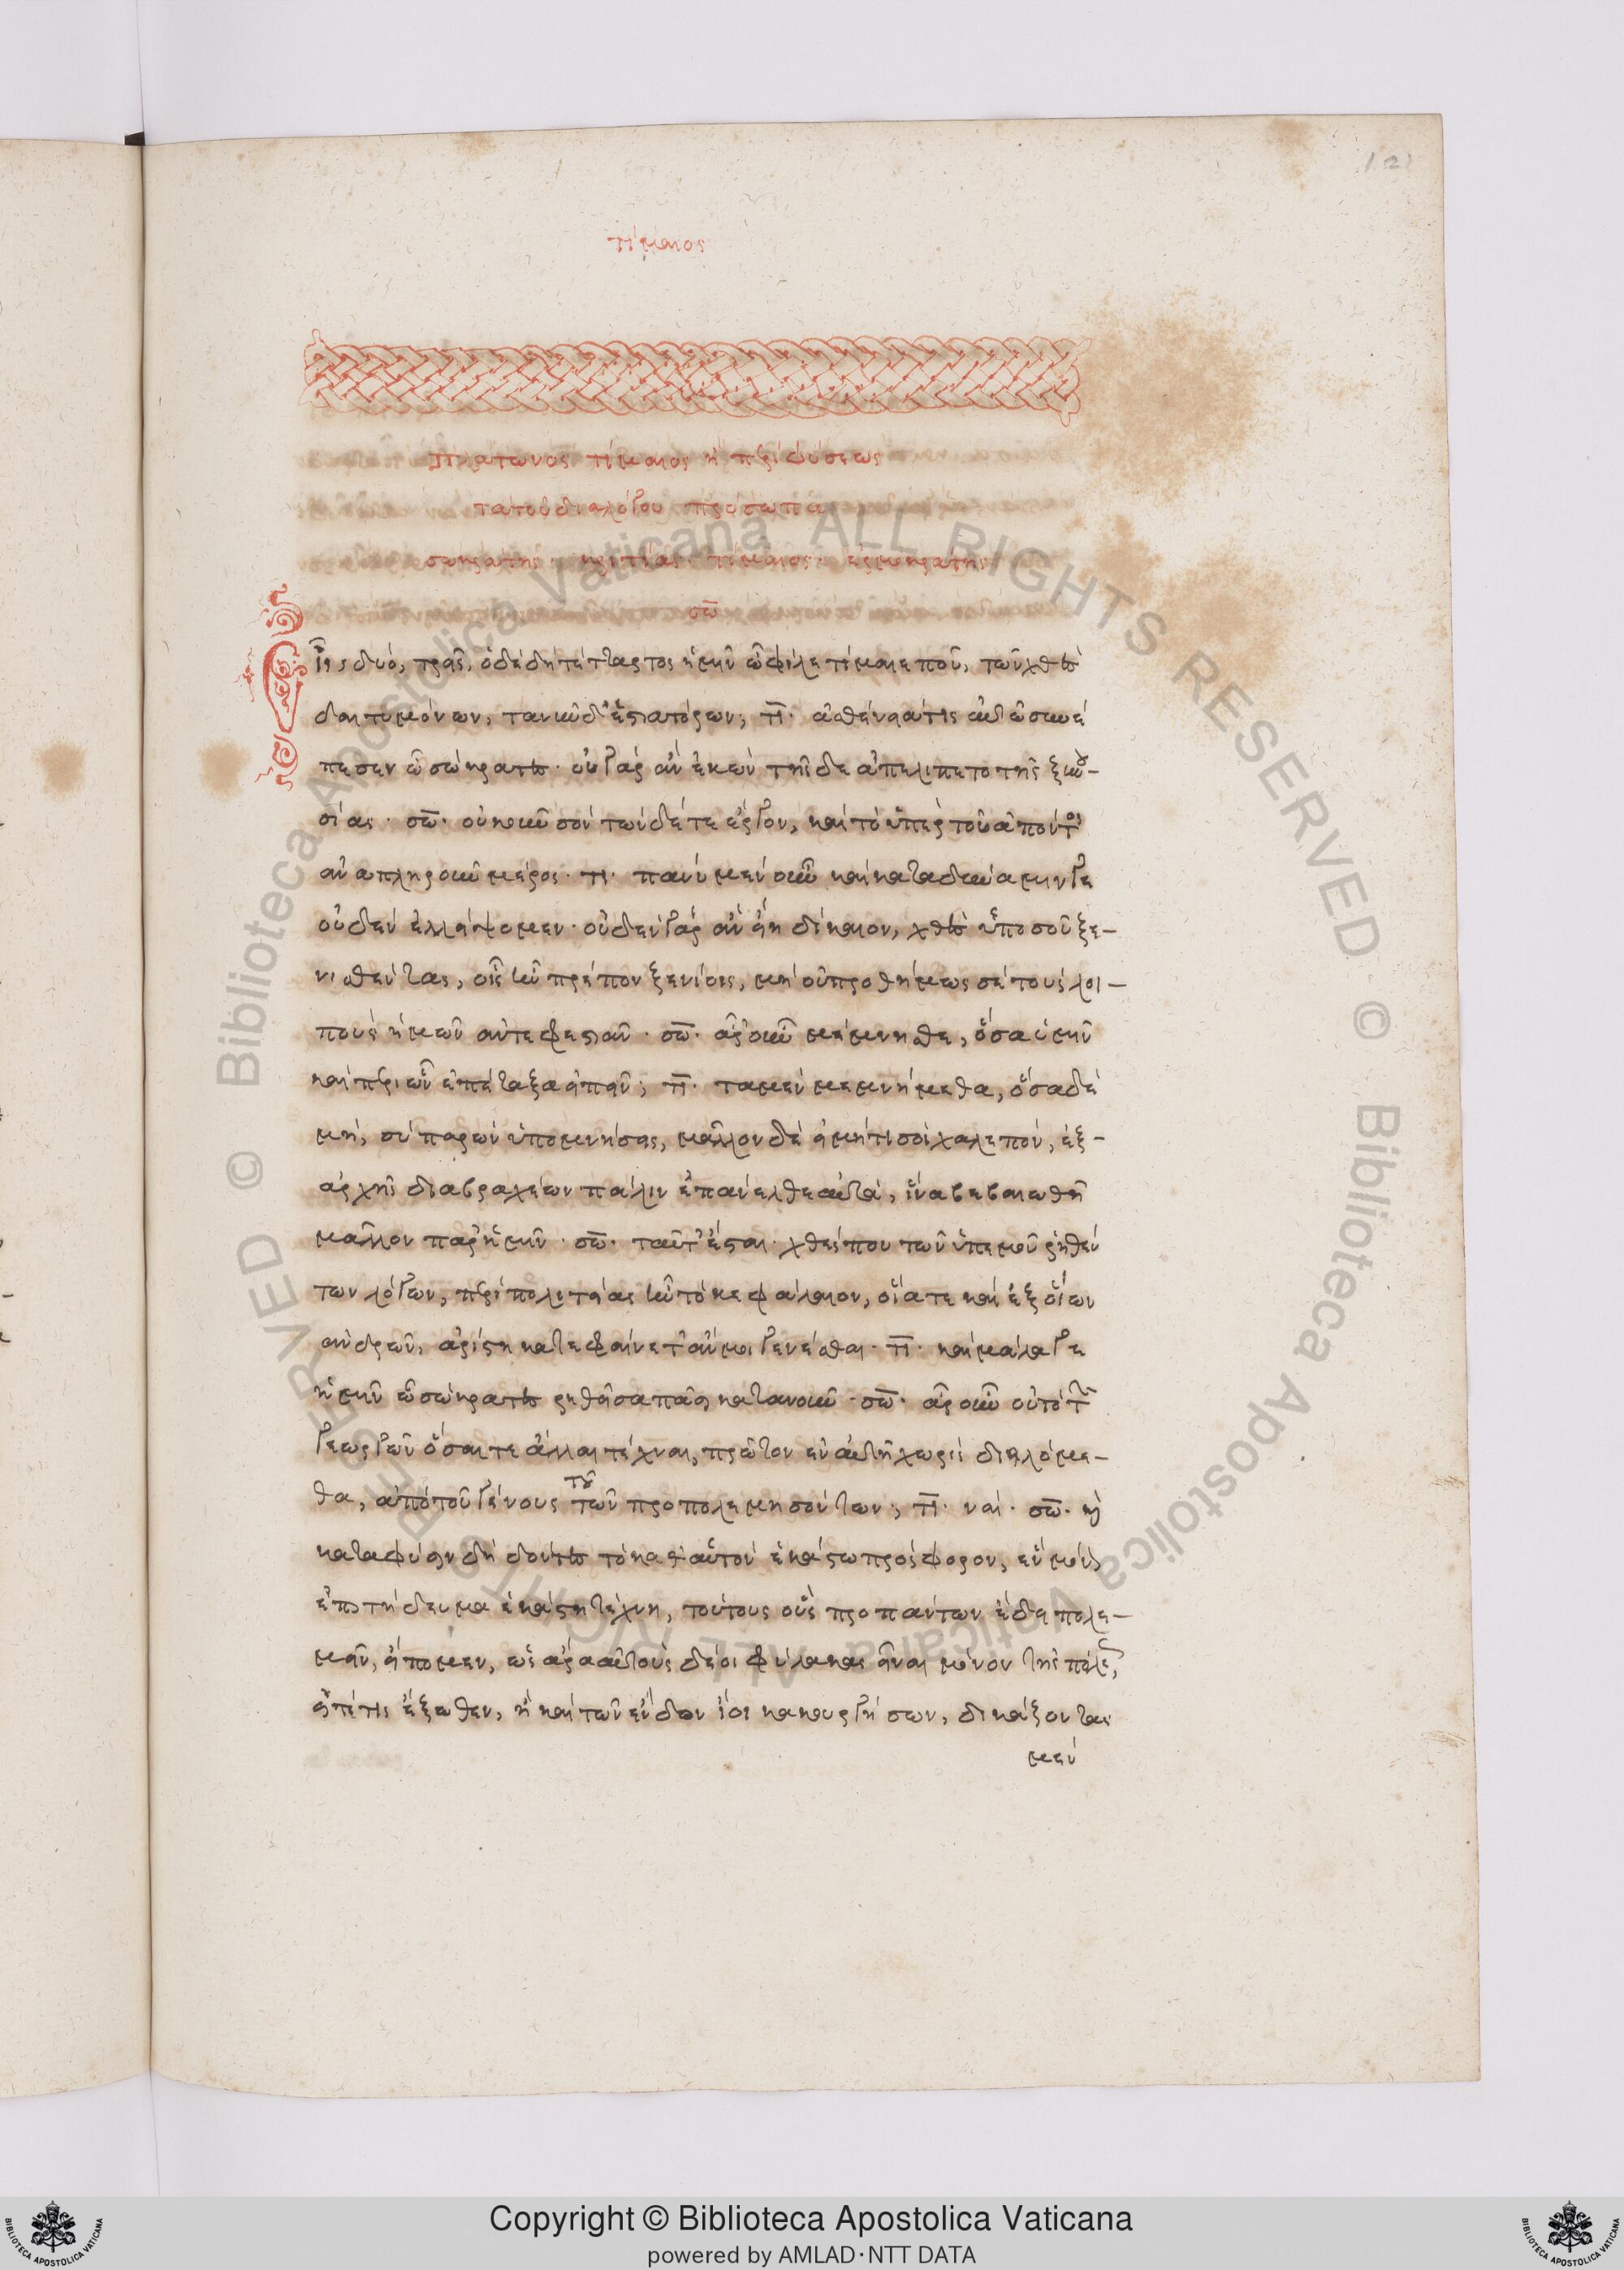 121
τίμαιος
Πλάτωνος τίμαιος ἢ περὶ φύσεως
τὰ τοῦ διαλόγου πρόσωπα
σωκράτης· κριτίας· τίμαιος· ἑρμοκράτης·
σω
Εἷς δυό, τρεῖς, ὁ δὲ δὴ τέταρτος ἡμῖν ὦ φίλε τίμαιε ποῦ, τῶν χθὲς
δαιτυμόνων, τανῦν δ' ἑστιατόρων; τι· ἀσθένειά τις αὐτῶ συνέ
πεσεν ὦ σώκρατες· οὐ γὰρ ἂν ἑκὼν τῆς δε ἀπελίπετο τῆς ξυνου-
σίας· σω· οὐκοῦν σὸν τῶνδέ τε ἔργον, καὶ τὸ ὑπὲρ τοῦ ἀπόντος
ἀναπληροῦν μέρος· τι· πάνυ μὲν οὖν καὶ κατὰ δύναμιν γε
οὐδὲν ἐλλείψομεν· οὐδὲν γὰρ ἂν εἴη δίκαιον, χθὲς ὑπό σου ξε-
νισθέντας, οἷς ἦν πρέπον ξενίοις, μὴ οὐ προθύμως σὲ τοὺς λοι-
ποὺς ἡμῶν ἀντεφεστιᾶν· σω· ἆρ' οὖν μέμνησθε, ὅσα ὑμῖν
καὶ περὶ ὧν ἐπέταξα εἰπεῖν; τι· τὰ μὲν μεμνήμεθα, ὅσα δὲ
μή, σὺ παρὼν ὑπομνήσεις, μᾶλλον δὲ εἰ μή τί σοι χαλεπόν, ἐξ-
ἀρχῆς διαβραχέων πάλιν ἐπάνελθε αὐτά, ἵνα βεβαιωθῆ
μᾶλλον παρ' ἡμῖν· σω· ταῦτ' ἔσται· χθές που τῶν ὑπ' ἐμοῦ ῥηθέν
των λόγων, περὶ πολιτείας ἦν τὸ κεφάλαιον, οἵα τε καὶ ἐξ οἵων
ἀνδρῶν, ἀρίστη κατεφαίνετ' ἄν μοι γενέσθαι· τι· καὶ μάλα γε
ἡμῖν ὦ σώκρατες ῥηθεῖσα πᾶσι κατανοῦν· σω· ἆρ οὖν οὐ τὸ τῶν
γεωργῶν ὅσαι τε ἄλλαι τέχναι, πρῶτον ἐν αὐτῆ χωρὶς διειλόμε-
θα, ἀπὸ τοῦ γένους τοῦ τῶν προπολεμησόντων; τι· ναί· σω· καὶ
κατὰ φύσιν δὴ δόντες τὸ καθ' αὑτὸν ἑκάστω πρόσφορον, ἓν μόνον
ἐπιτήδευμα ἑκάστη τέχνη, τούτους οὓς πρὸ πάντων ἔδει πολε-
μεῖν, εἴπομεν, ὡς ἄρα αὐτοὺς δέοι φύλακας εἶναι μόνον τῆς πόλεως,
εἴτέ τις ἔξωθεν, ἢ καὶ τῶν ἔνδον ἴοι κακουργήσων, δικάζοντας
μὲν
© Biblioteca Apostolica Vaticana ALL RIGHTS RESERVED © Biblioteca Apostolica Vaticana ALL RIGHTS RESERVED
Copyright © Biblioteca Apostolica Vaticana
powered by AMLAD·NTT DATA
BIBLIOTECA APOSTOLICA VATICANA
BIBLIOTECA APOSTOLICA VATICANA